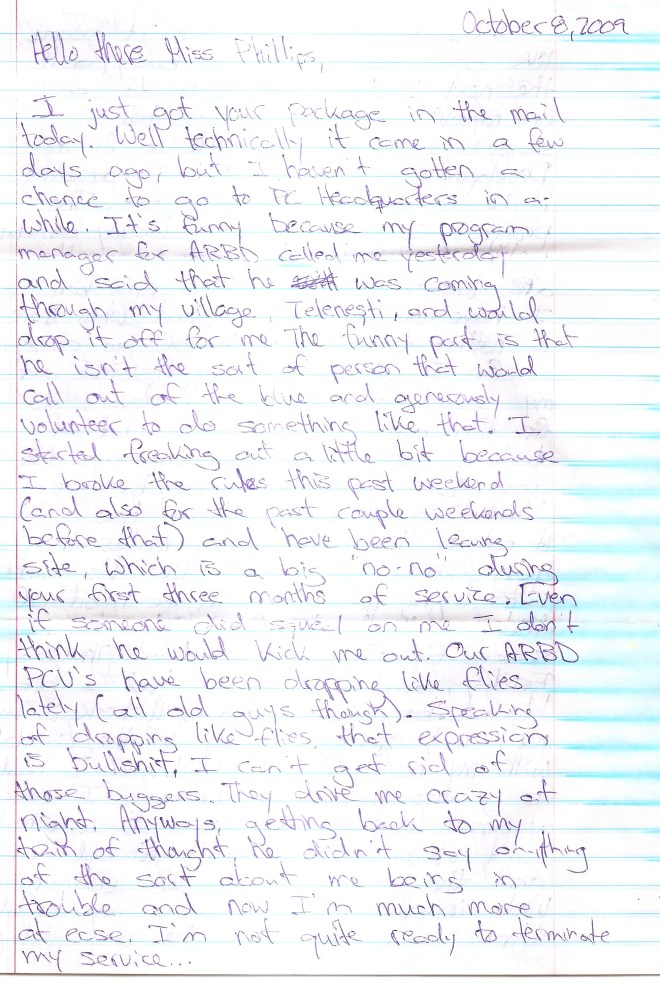 October 8, 2009
Hello there Miss Phillips,
I just got your package in the mail
today. Well technically it came in a few
days ago, but I haven't gotten a
chance to go to PC Headquarters in a-
while. It's funny because my program
manager for ARBD called me yesterday
and said that he was coming
through my village, Telenești, and would
drop it off for me. The funny part is that
he isn't the sort of person that would
call out of the blue and generously
volunteer to do something like that. I
started freaking out a little bit because
I broke the rules this past weekend
(and also for the past couple weekends
before that) and have been leaving
site, which is a big "no-no" during
your first three months of service. Even
if someone did squeel on me I don't
think he would kick me out. Our ARBD
PCV's have been dropping like flies
lately (all old guys though). Speaking
of dropping like flies, that expression
is bullshit, I can't get rid of
those buggers. They drive me crazy at
night. Anyways, getting back to my
train of thought, he didn't say anything
of the sort about me being in
trouble and now I'm much more
at ease. I'm not quite ready to terminate
my service...